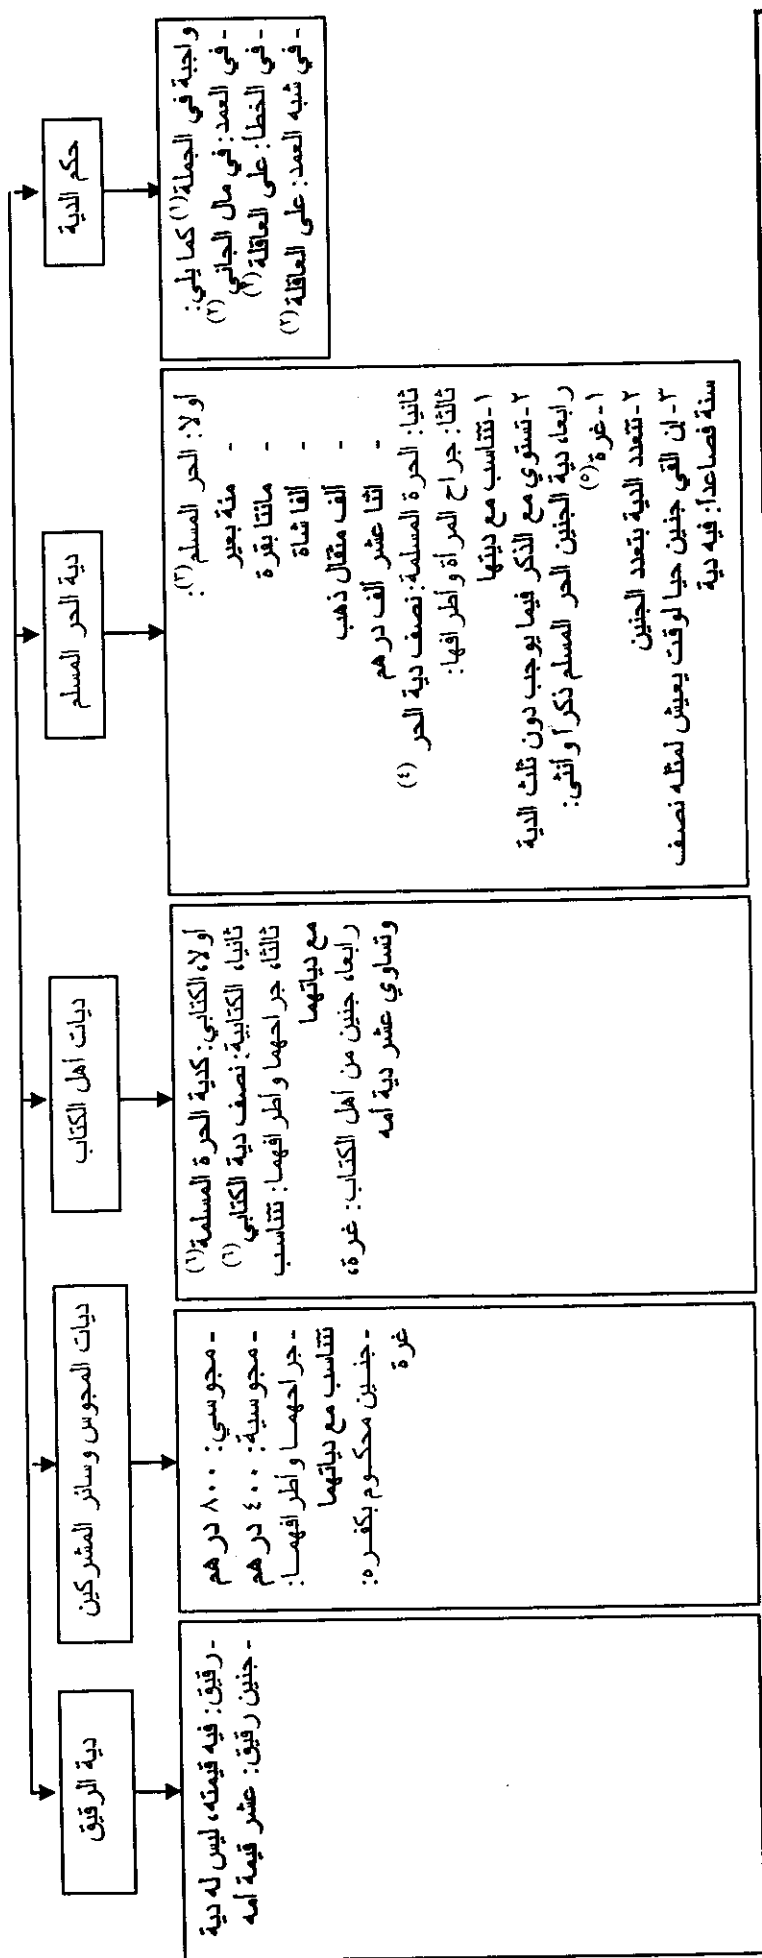 حكم الدية
واجبة في الجملة(١) كما يلي:
- في العمد: في مال الجاني (٢)
- في الخطأ: على العاقلة(٢)
- في شبه العمد: على العاقلة(٢)
دية الحر المسلم
أولا: الحر المسلم(٣):
- مئة بعير
- مائتا بقرة
- ألفا شاة
- ألف مثقال ذهب
- اثنا عشر ألف درهم
ثانيا: الحرة المسلمة: نصف دية الحر (٤)
ثالثا: جراح المرأة وأطرافها:
١- تتناسب مع ديتها
٢- تستوي مع الذكر فيما يوجب دون ثلث الدية
رابعا، دية الجنين الحر المسلم ذكرا وأنثى:
١- غرة(٥)
٢- تتعدد الدية بتعدد الجنين
٣- إن ألقي جنين حيا لوقت يعيش لمثله نصف
سنة فصاعدا: فيه دية
ديات أهل الكتاب
أولا، الكتابي: كدية الحرة المسلمة(٦)
ثانيا، الكتابية: نصف دية الكتابي(٦)
ثالثا، جراحهما وأطرافهما: تتناسب
مع دياتهما
رابعا، جنين من أهل الكتاب: غرة،
وتساوي عشر دية أمه
ديات المجوس وسائر المشركين
- مجوسي: ٨٠٠ درهم
- مجوسية: ٤٠٠ درهم
- جراحهما وأطرافهما:
تتناسب مع دياتهما
- جنين محكوم بكفره:
غرة
دية الرقيق
- رقيق: فيه قيمته، ليس له دية
- جنين رقيق: عشر قيمة أمه